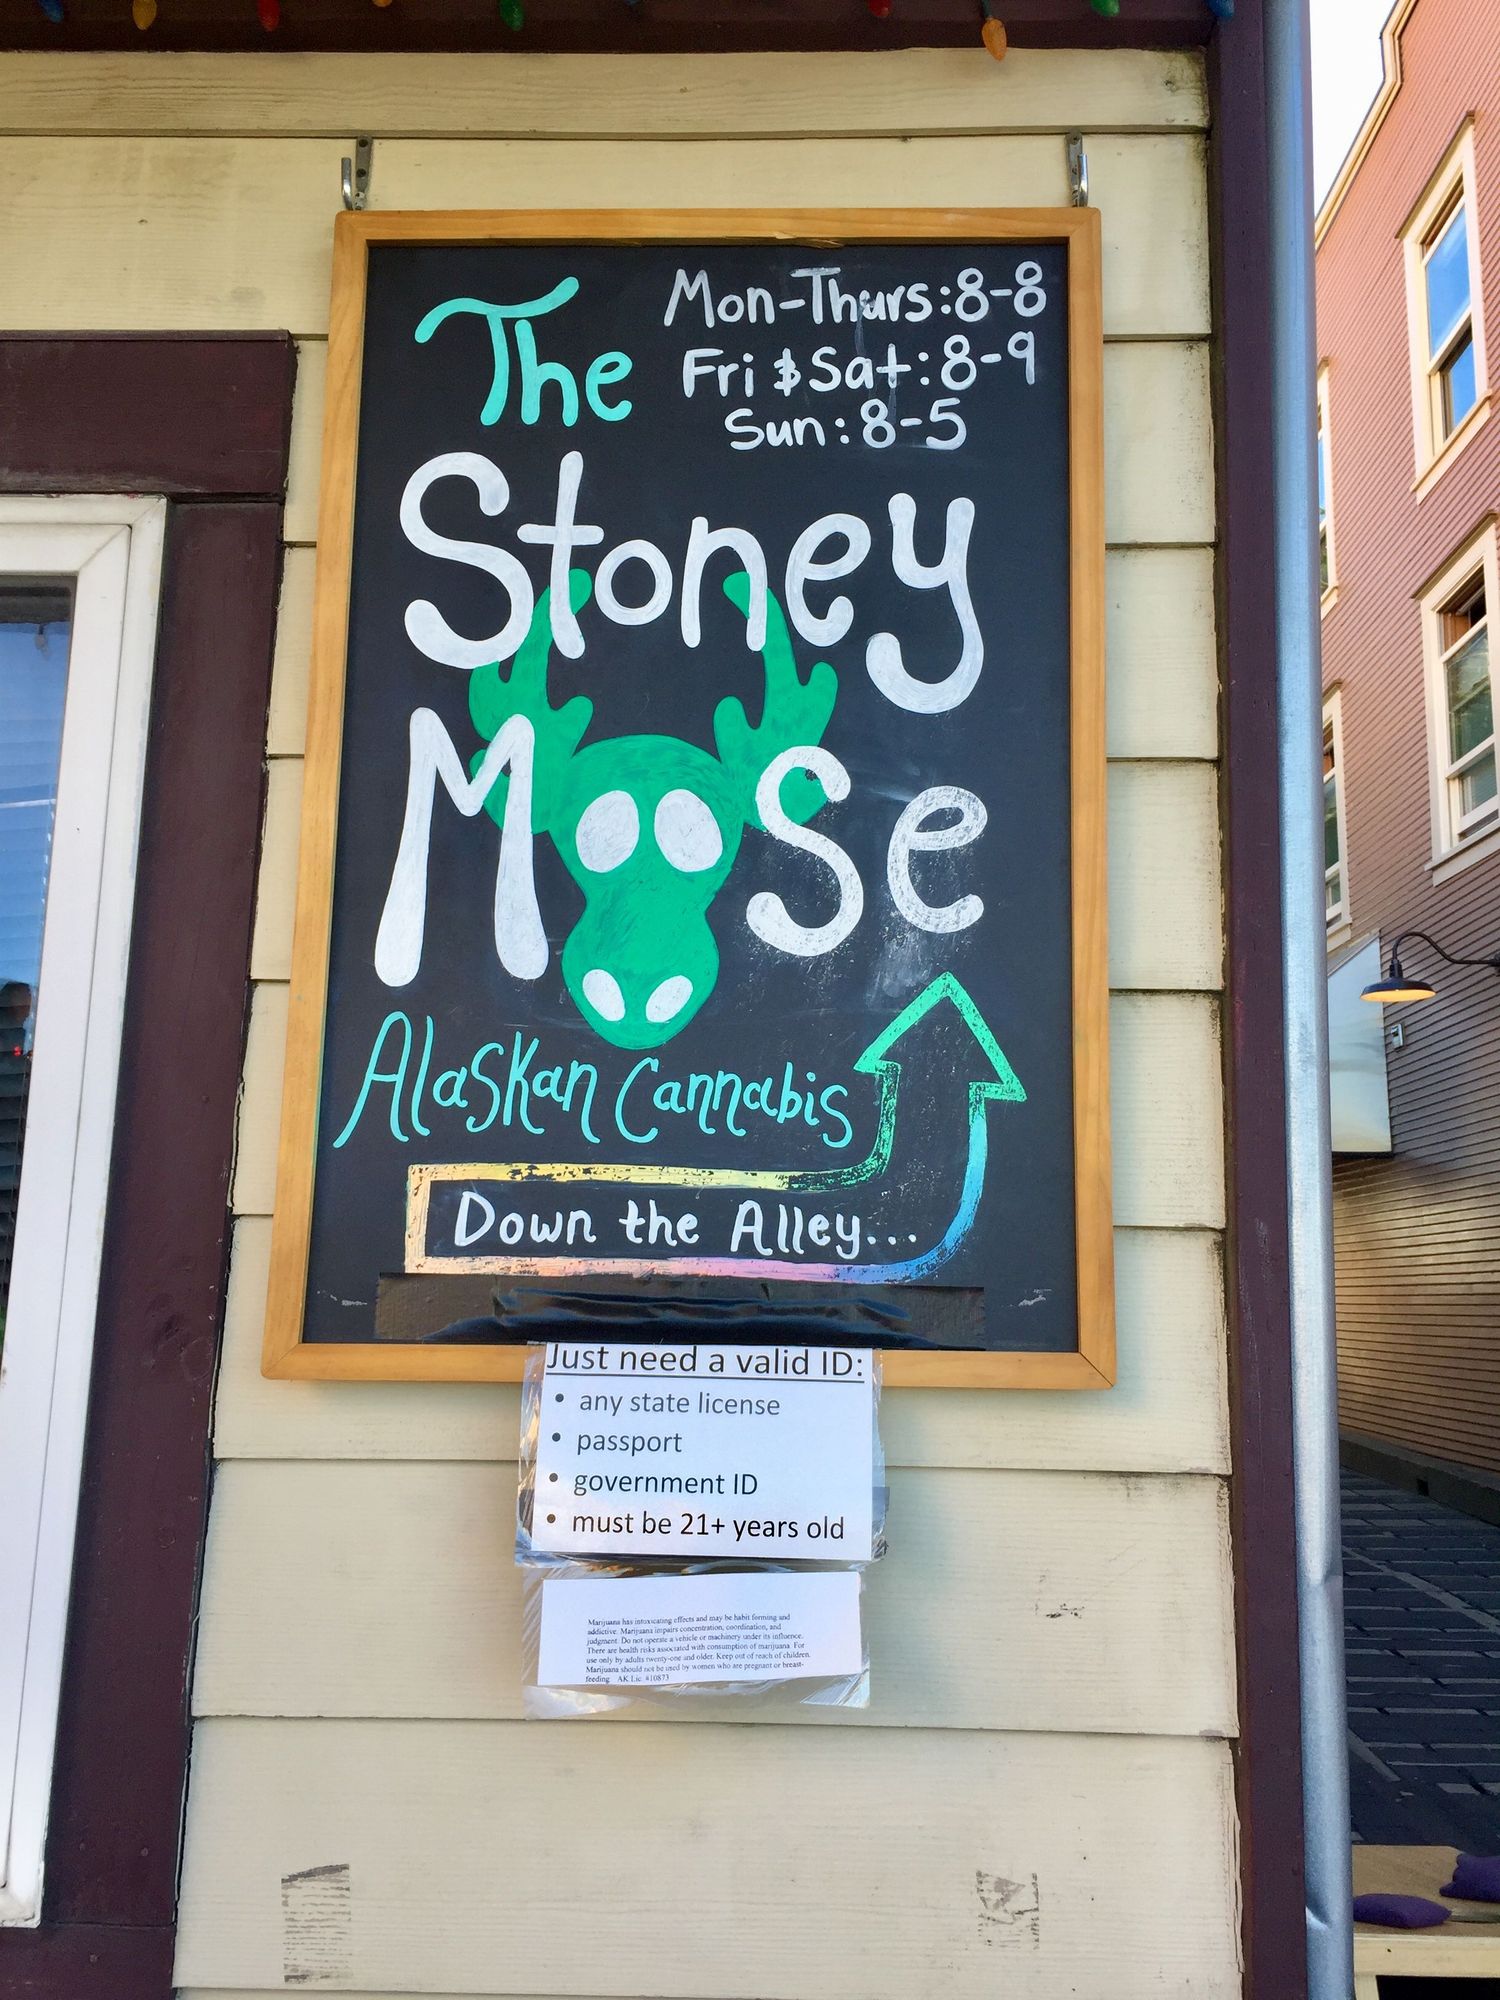 The
Mon-Thurs:8-8
Fri & Sat:8-9
Sun:8-5
Stoney
Moose
Alaskan Cannabis
Down the Alley...
Just need a valid ID:
• any state license
• passport
• government ID
• must be 21+ years old
Marijuana has intoxicating effects and may be habit forming and
addictive. Marijuana impairs concentration, coordination, and
judgment. Do not operate a vehicle or machinery under its influence.
There are health risks associated with consumption of marijuana. For
use only by adults twenty-one and older. Keep out of reach of children.
Marijuana should not be used by women who are pregnant or breast-
feeding. AK Lic. #10873